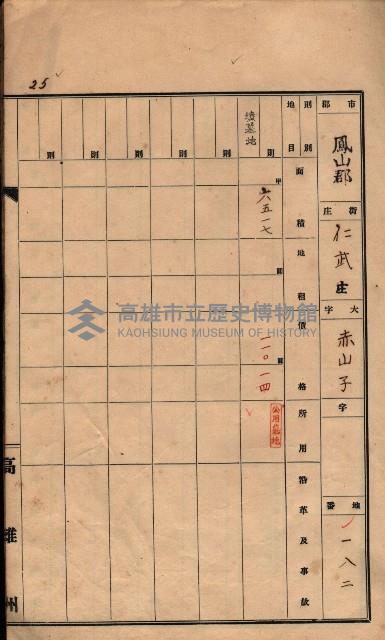 25
市郡 鳳山郡 街庄 仁武庄 大字 赤山子 字 地番 一八二
則別 地目 面積 地租 價格 所用 沿革及事故
墳墓地 則 甲 六五一七 圓 一一〇一四 圓 公用墓地
則
則
則
則
則
高雄州
高雄市立歷史博物館
KAOHSIUNG MUSEUM OF HISTORY